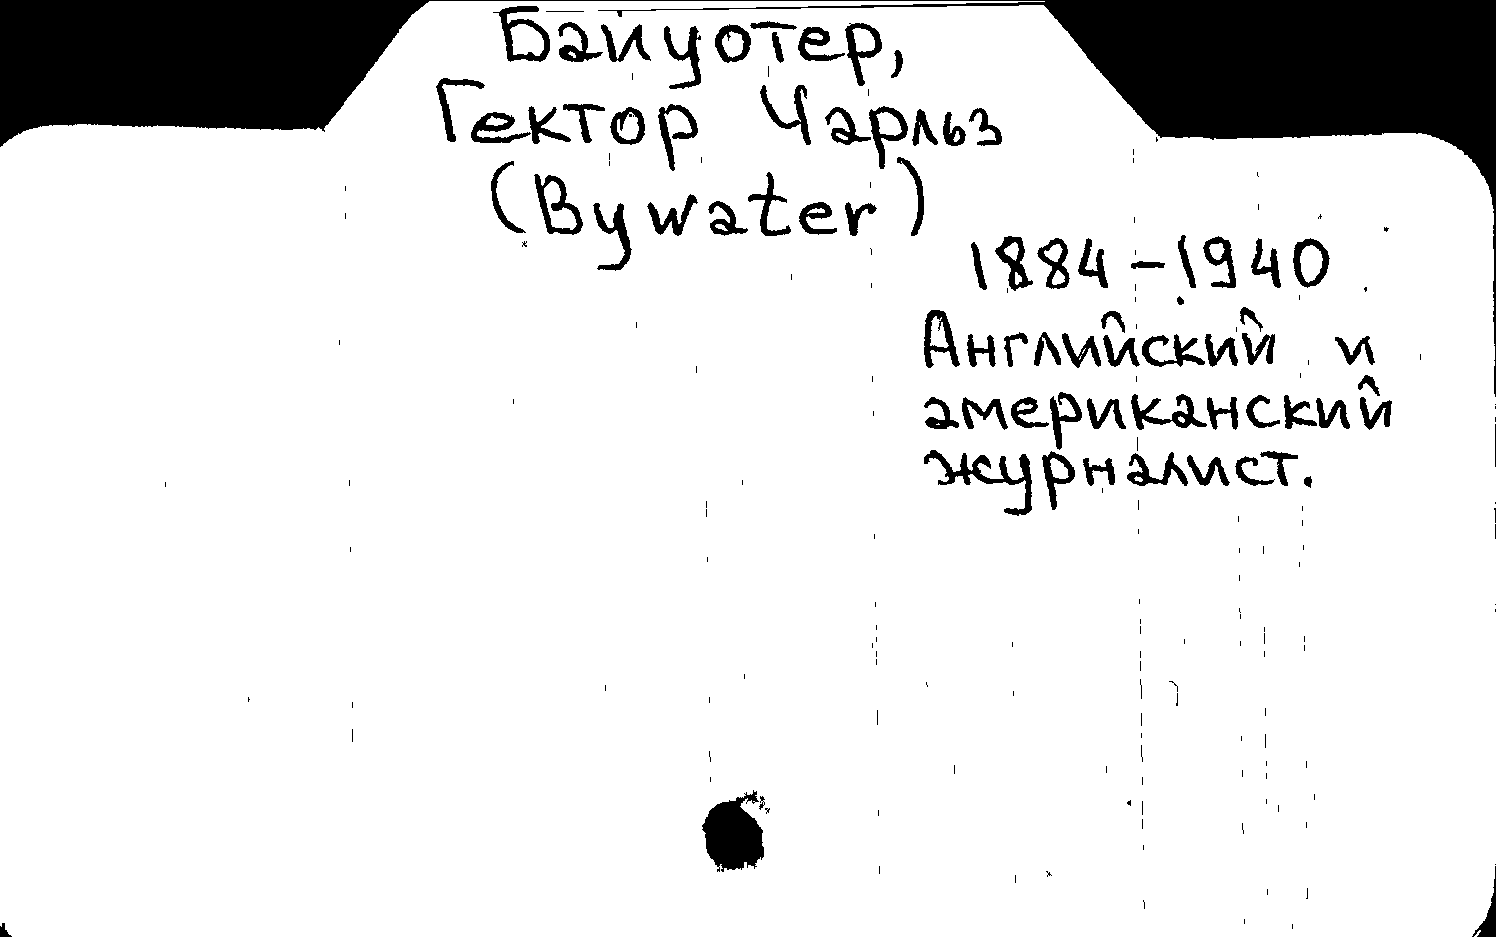 Байуотер,
Гектор Чарльз
(Bywater)
1884-1940
Английский и
американский
журналист.